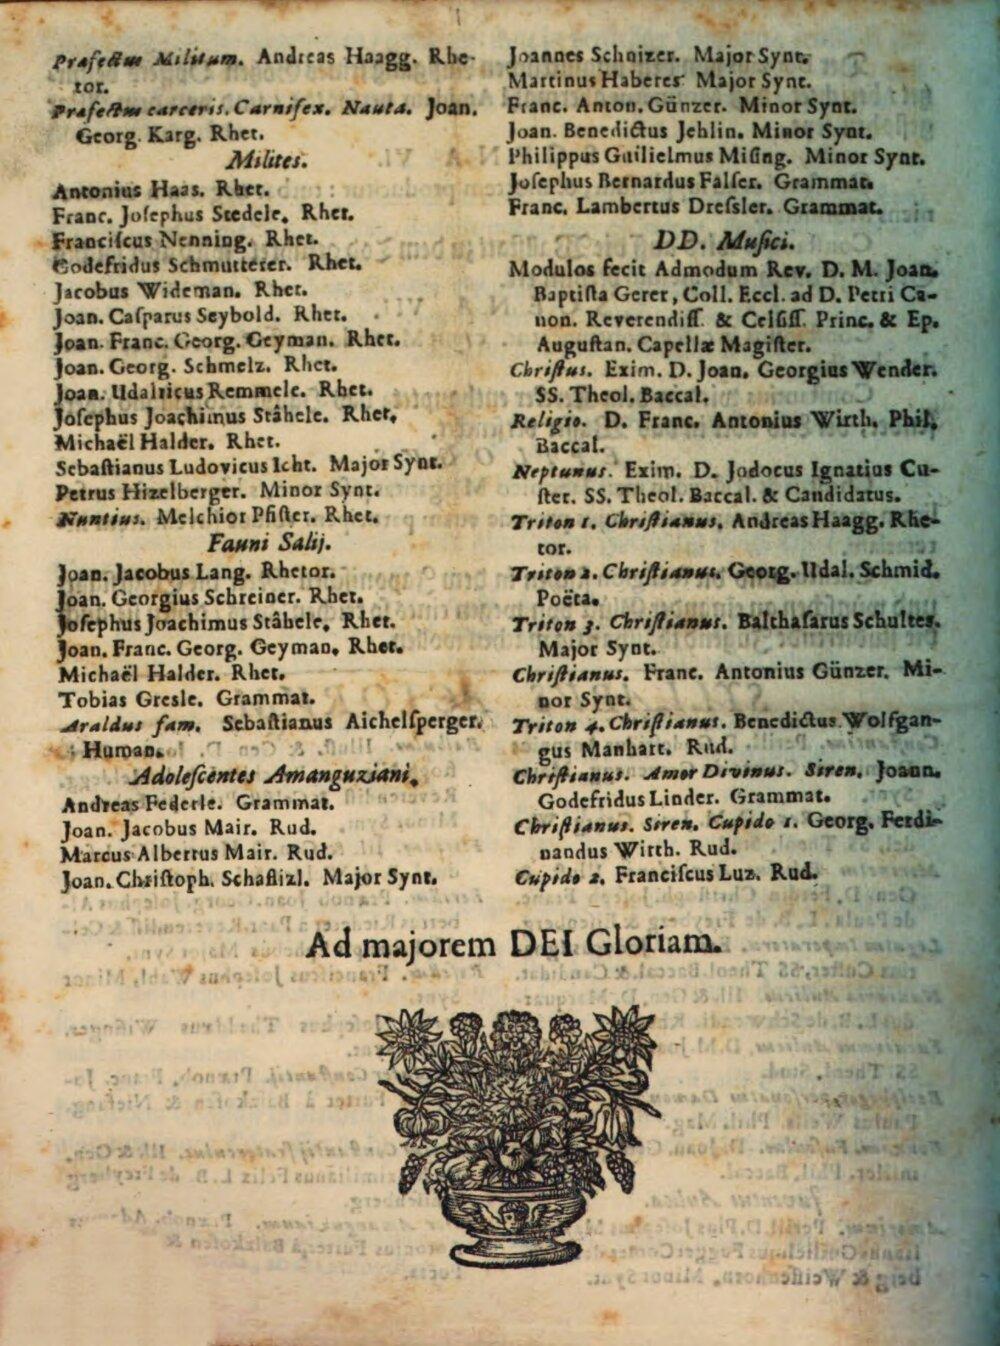 Præfectus Militum. Andreas Haagg. Rhe-
tor.
Præfectus carceris. Carnifex. Nauta. Joan.
Georg. Karg. Rhet.
Milites.
Antonius Haas. Rhet.
Franc. Joſephus Stedele. Rhet.
Franciſcus Nenning. Rhet.
Godefridus Schmutterer. Rhet.
Jacobus Wideman. Rhet.
Joan. Caſparus Seybold. Rhet.
Joan. Franc. Georg. Geyman. Rhet.
Joan. Georg. Schmelz. Rhet.
Joan. Udalricus Remmele. Rhet.
Joſephus Joachimus Stâhele. Rhet.
Michaël Halder. Rhet.
Sebaſtianus Ludovicus Icht. Major Synt.
Petrus Hizelberger. Minor Synt.
Nuntius. Melchior Pfiſter. Rhet.
Fauni Salij.
Joan. Jacobus Lang. Rhetor.
Joan. Georgius Schreiner. Rhet.
Joſephus Joachimus Stâhele. Rhet.
Joan. Franc. Georg. Geyman. Rhet.
Michaël Halder. Rhet.
Tobias Gresle. Grammat.
Araldus fam. Sebaſtianus Aichelſperger.
Human.
Adoleſcentes Amanguziani.
Andreas Federle. Grammat.
Joan. Jacobus Mair. Rud.
Marcus Albertus Mair. Rud.
Joan. Chriſtoph. Schaflizl. Major Synt.
Joannes Schnizer. Major Synt.
Martinus Haberes Major Synt.
Franc. Anton. Günzer. Minor Synt.
Joan. Benedictus Jehlin. Minor Synt.
Philippus Guilielmus Miſing. Minor Synt.
Joſephus Bernardus Falſer. Grammat.
Franc. Lambertus Dreſsler. Grammat.
DD. Muſici.
Modulos fecit Admodum Rev. D. M. Joan.
Baptiſta Gerer, Coll. Eccl. ad D. Petri Ca-
non. Reverendiſſ. & Celſiſſ. Princ. & Ep.
Auguſtan. Capellæ Magiſter.
Chriſtus. Exim. D. Joan. Georgius Wender.
SS. Theol. Baccal.
Religio. D. Franc. Antonius Wirth. Phil.
Baccal.
Neptunus. Exim. D. Jodocus Ignatius Cu-
ſter. SS. Theol. Baccal. & Candidatus.
Triton 1. Chriſtianus. Andreas Haagg. Rhe-
tor.
Triton 2. Chriſtianus. Georg. Udal. Schmid.
Poëta.
Triton 3. Chriſtianus. Balthaſarus Schultes.
Major Synt.
Chriſtianus. Franc. Antonius Günzer. Mi-
nor Synt.
Triton 4. Chriſtianus. Benedictus Wolfgan-
gus Manhart. Rud.
Chriſtianus. Amor Divinus. Siren. Joann.
Godefridus Linder. Grammat.
Chriſtianus. Siren. Cupido 1. Georg. Ferdi-
nandus Wirth. Rud.
Cupido 2. Franciſcus Luz. Rud.
Ad majorem DEI Gloriam.